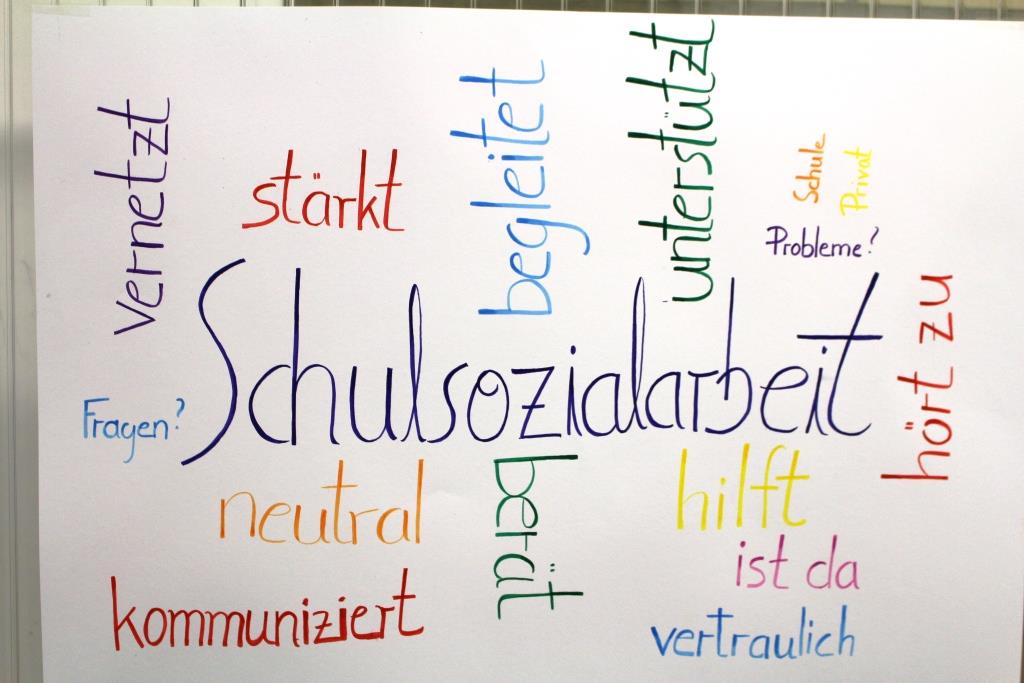 vernetzt
stärkt
begleitet
unterstützt
Schule
Privat
Probleme?
Schulsozialarbeit
hört zu
Fragen?
neutral
berät
hilft
ist da
kommuniziert
vertraulich